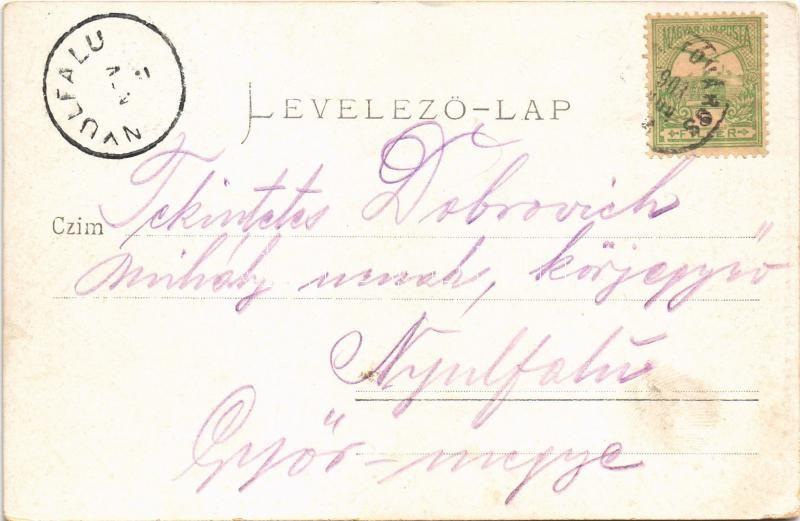 NYULFALU
MAGYAR KIR. POSTA
FILLÉR
LEVELEZŐ-LAP
Czim
Tekintetes Dobrovich
Mihály urnak, körjegyző
Nyulfalu
Győr-megye